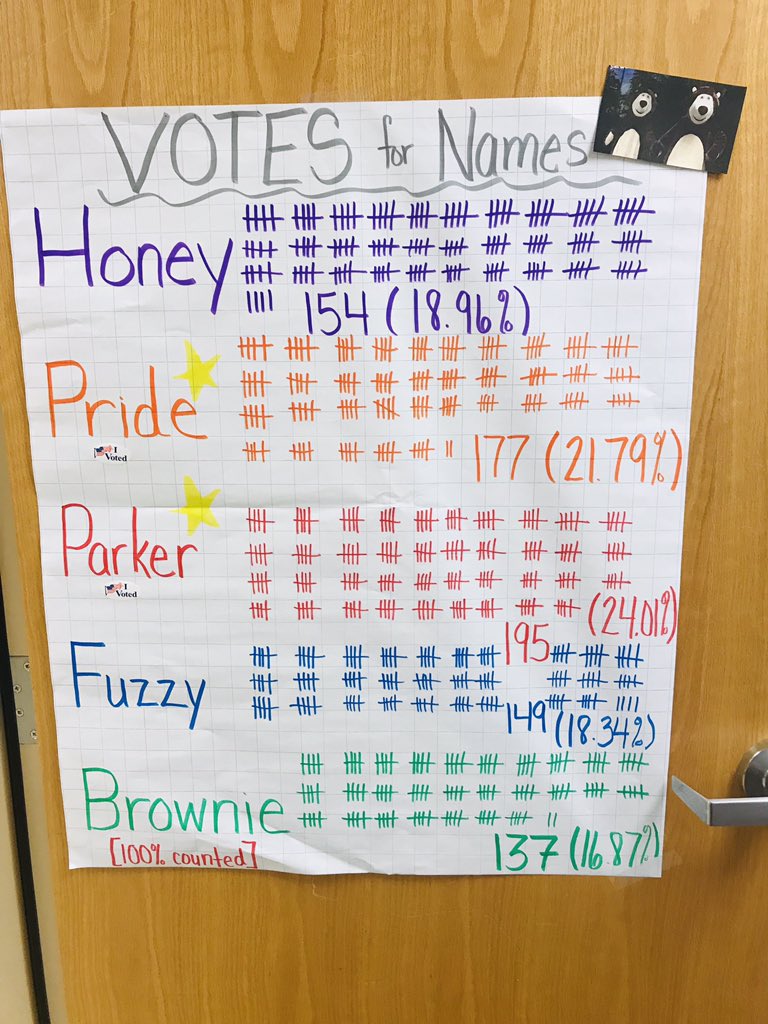 VOTES for Names
Honey
154 (18.96%)
Pride
I Voted
177 (21.79%)
Parker
I Voted
195
(24.01%)
Fuzzy
149 (18.34%)
Brownie
[100% counted]
137 (16.87%)